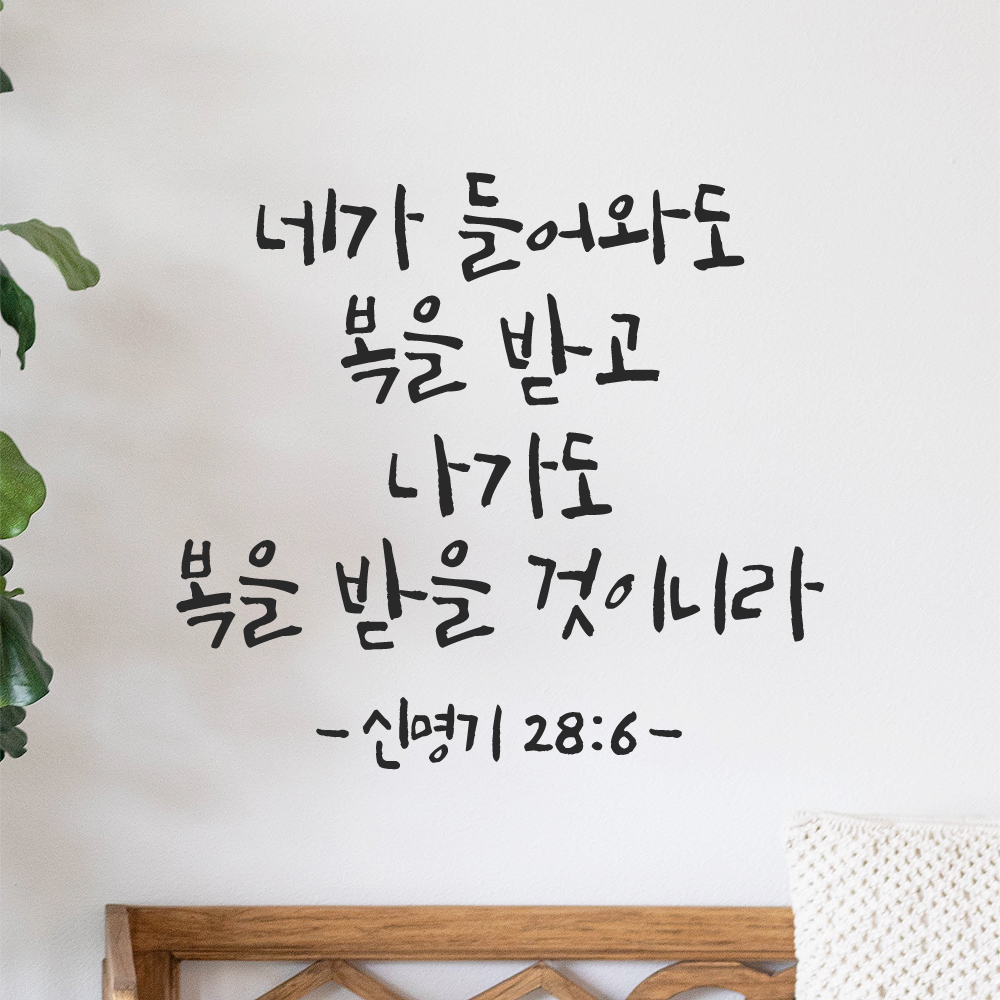 네가 들어와도
복을 받고
나가도
복을 받을 것이니라
-신명기 28:6-